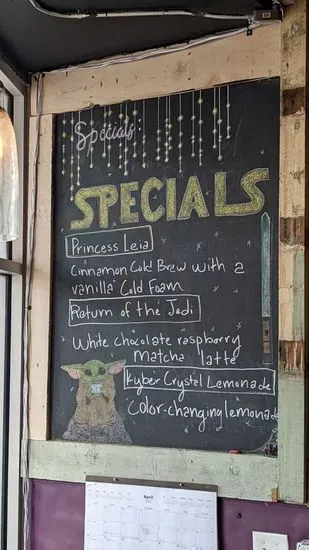 Specials:
SPECIALS
Princess Leia
Cinnamon Cold Brew with a
vanilla Cold Foam
Return of the Jedi
White chocolate raspberry
matcha latte
Kyber Crystal Lemonade
color-changing lemonade
April